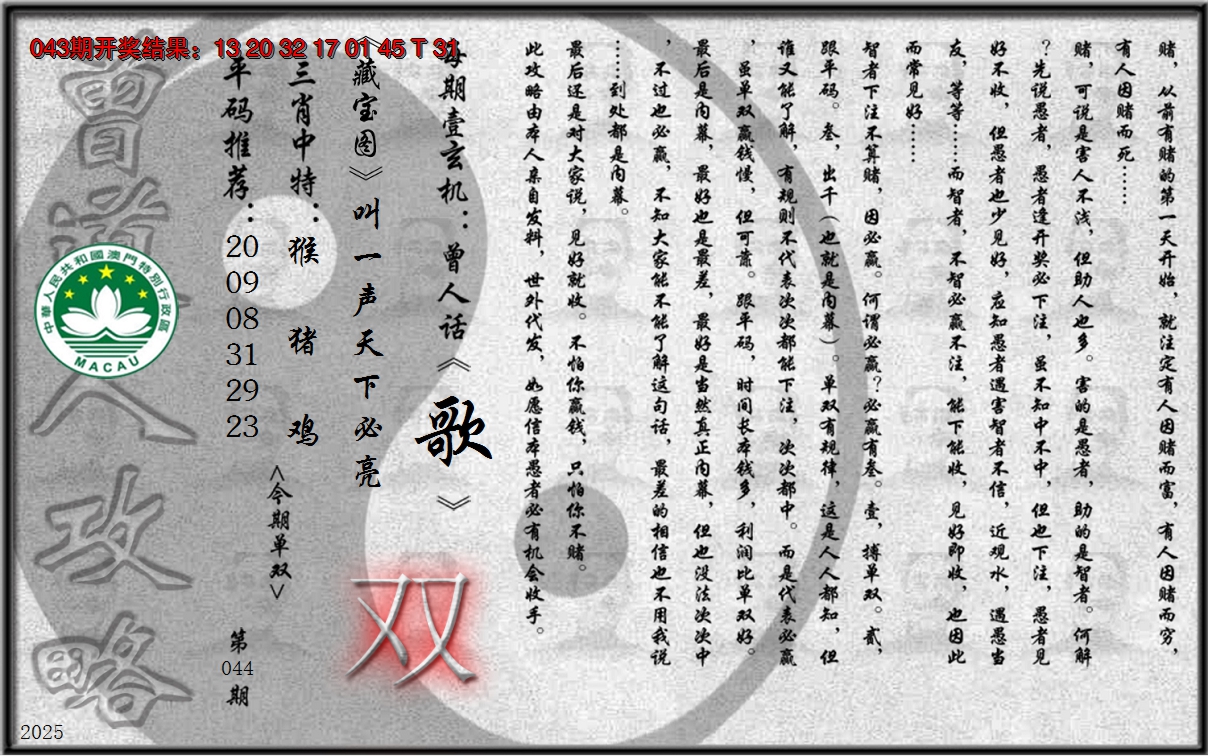 043期开奖结果：13 20 32 17 01 45 T 31
赌，从前有赌的第一天开始，就注定有人因赌而富，有人因赌而穷，
有人因赌而死……
赌，可说是害人不浅，但助人也多。害的是愚者，助的是智者。何解
？先说愚者，愚者逢开奖必下注，虽不知中不中，但也下注，愚者见
好不收，但愚者也少见好，应知愚者遇害智者不信，近观水，遇愚当
友，等等……而智者，不智必赢不注，能下能收，见好即收，也因此
而常见好……
智者下注不算赌，因必赢。何谓必赢？必赢有叁。壹，搏单双。贰，
跟平码。叁，出千（也就是内幕）。单双有规律，这是人人都知，但
谁又能了解，有规则不代表次次都能下注，次次都中。而是代表必赢
，虽单双赢钱慢，但可靠。跟平码，时间长本钱多，利润比单双好。
最后是内幕，最好也是最差，最好是当然真正内幕，但也没法次次中
，不过也必赢，不知大家能不能了解这句话，最差的相信也不用我说
……到处都是内幕。
最后还是对大家说，见好就收。不怕你赢钱，只怕你不赌。
此攻略由本人亲自发料，世外代发，如愿信本愚者必有机会收手。
每期壹玄机：曾人话《歌》
《藏宝图》叫一声天下必亮
双
三肖中特：猴 猪 鸡
<今期单双>
平码推荐：20 09 08 31 29 23
第044期
曾道人攻略
中華人民共和國澳門特別行政區
MACAU
2025